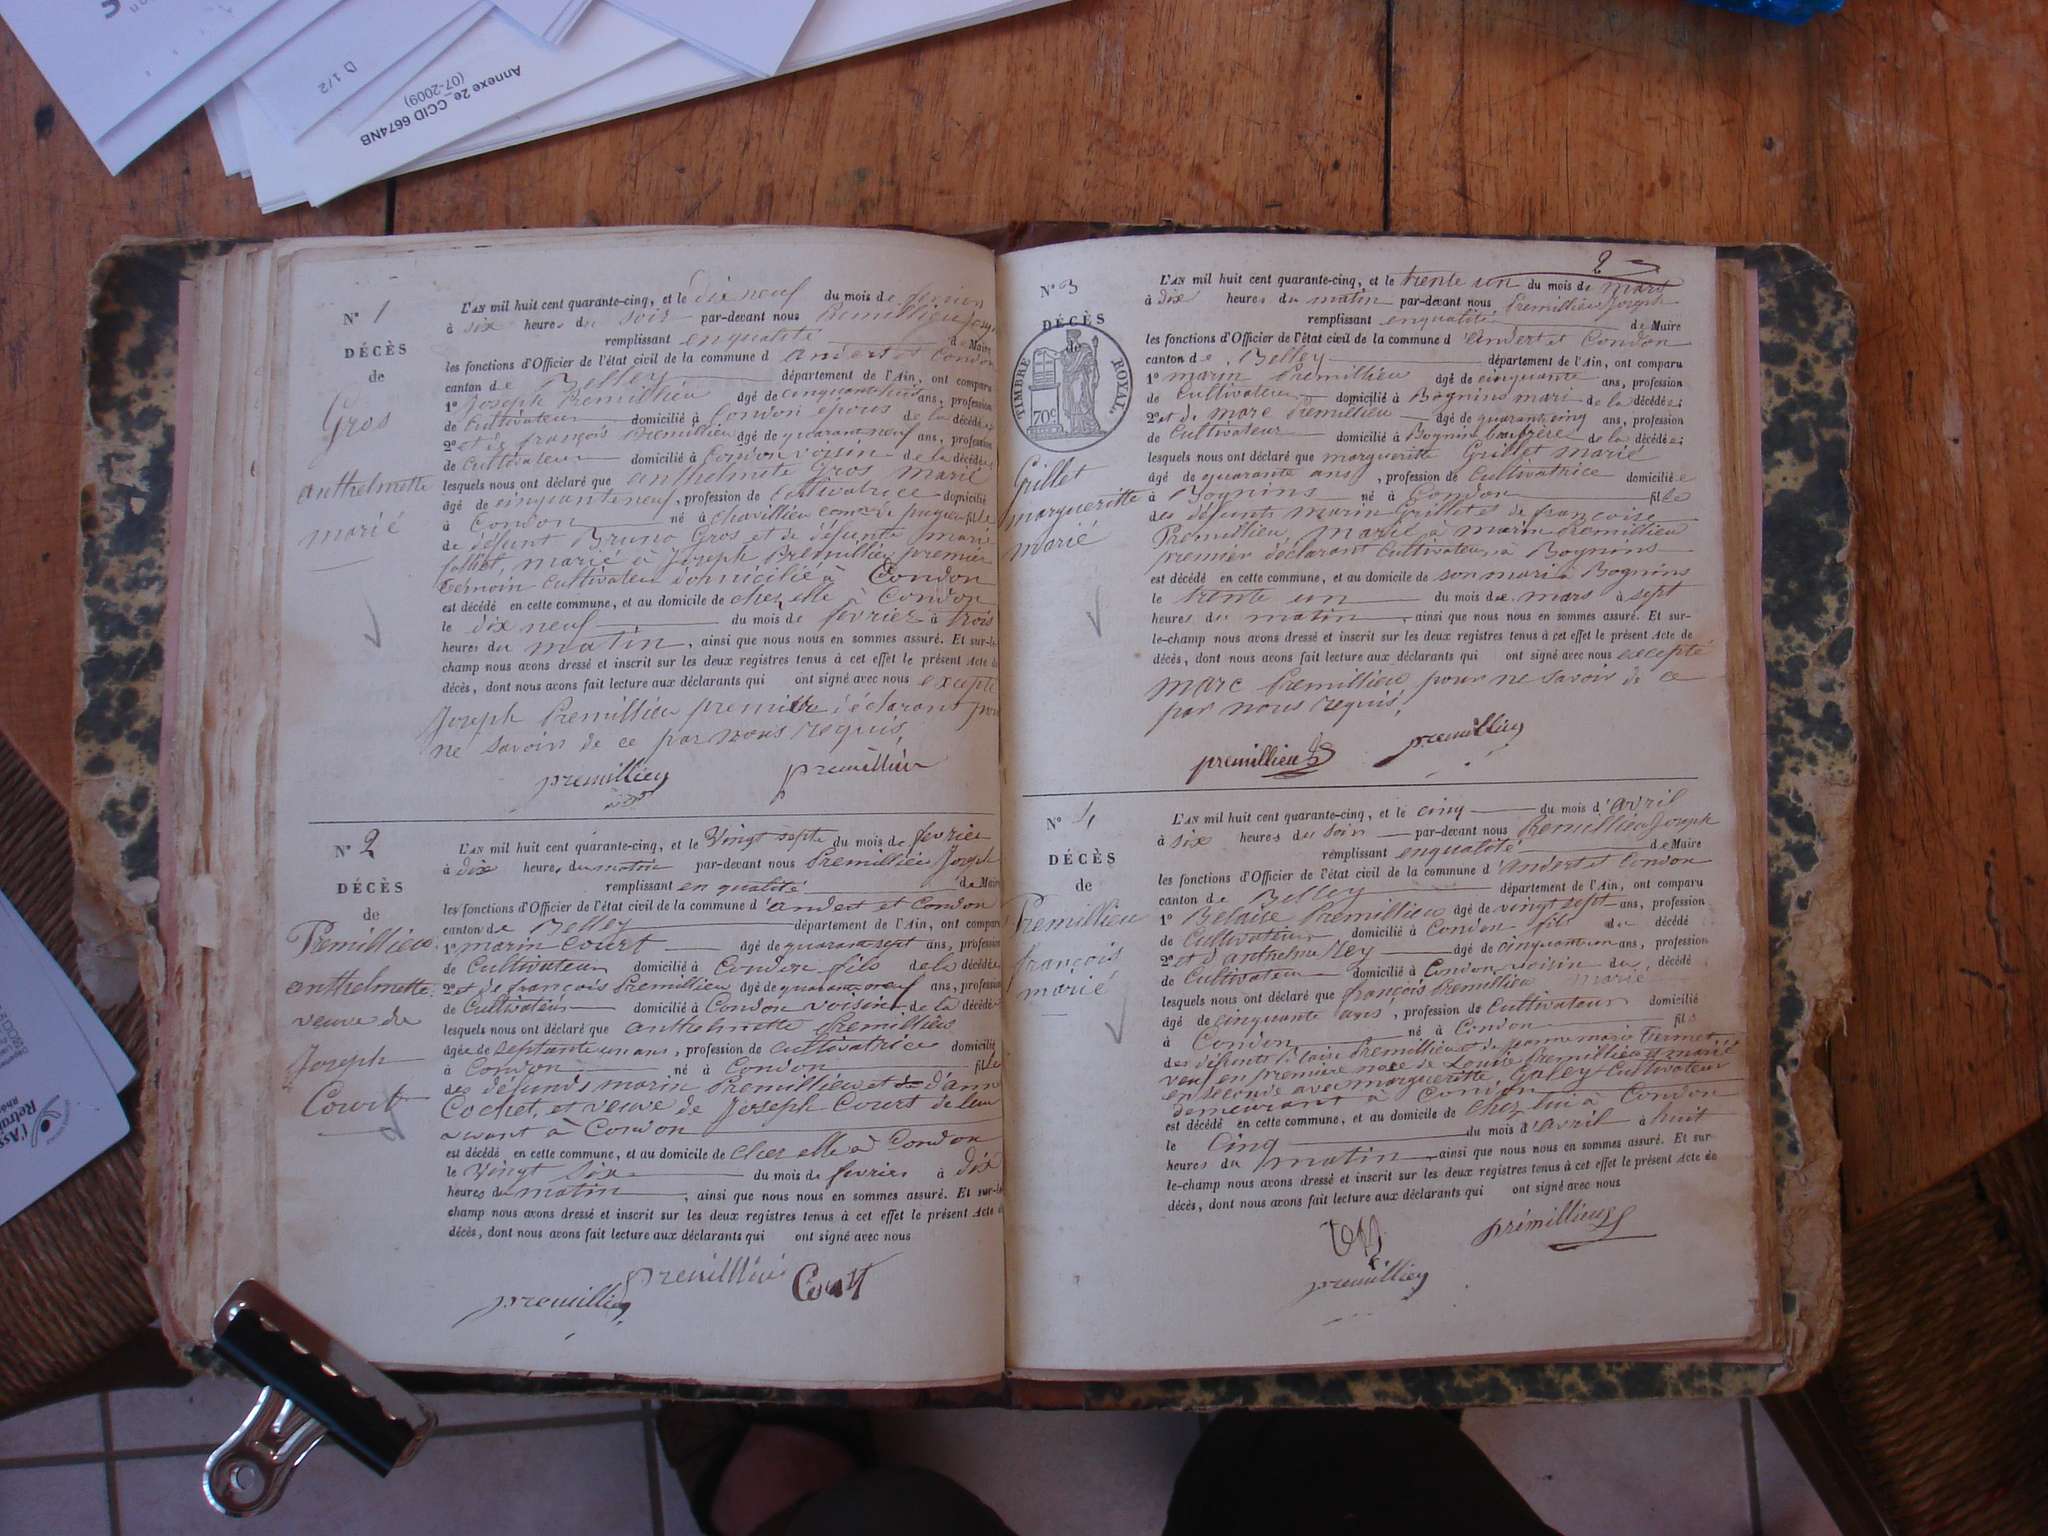 D 1/2
Annexe 2e_CCID 6674NB
(07-2009)
N° 1
DÉCÈS
de
Gros
anthelmette
marié
L'AN mil huit cent quarante-cinq, et le dix neuf du mois de
à six heures du soir par-devant nous Premillieu
remplissant enqualité de Maire
les fonctions d'Officier de l'état civil de la commune d'andert et Condon
canton de Belley département de l'Ain, ont comparu
1° Joseph Premillieu âgé de ans, profession
de Cultivateur domicilié à Condon epous de la décédée
2° et de françois Premillieu âgé de quarant neuf ans, profession
de cultivateur domicilié à Condon voisin de la décédée
lesquels nous ont déclaré que anthelmette Gros marié
âgé de cinquante neuf, profession de Cultivatrice domicilié
à Condon né à chavillieu fille
de défunt Bruno Gros et de défunte marie
marié à Joseph Premillieu premier
témoin Cultivateur domicilié à Condon
est décédé en cette commune, et au domicile de chez elle à Condon
le dix neuf du mois de fevrier à trois
heures du matin, ainsi que nous nous en sommes assuré. Et sur-le-
champ nous avons dressé et inscrit sur les deux registres tenus à cet effet le présent Acte de
décès, dont nous avons fait lecture aux déclarants qui ont signé avec nous excepté
Joseph Premillieu premier déclarant pour
ne savoir de ce par nous requis,
premillieu premillieu
N° 2
DÉCÈS
de
Premillieu
anthelmette
veuve de
Joseph
Court
L'AN mil huit cent quarante-cinq, et le Vingt septe du mois de fevrier
à dix heures du matin par-devant nous Premillieu Joseph
remplissant en qualité de Maire
les fonctions d'Officier de l'état civil de la commune d'andert et Condon
canton de Belley département de l'Ain, ont comparu
1° marin Court âgé de quarant sept ans, profession
de Cultivateur domicilié à Condon fils de la décédée
2° et de françois Premillieu âgé de quarant neuf ans, profession
de Cultivateur domicilié à Condon voisin de la décédée
lesquels nous ont déclaré que anthelmette Premillieu
âgée de septante un ans, profession de cultivatrice domicilié
à Condon né à Condon fille
des défunts marin Premillieu et de d'anne
Cochet, et veuve de Joseph Court de leur
avant à Condon
est décédé en cette commune, et au domicile de chez elle à Condon
le Vingt six du mois de fevrier à dix
heures du matin, ainsi que nous nous en sommes assuré. Et sur-le-
champ nous avons dressé et inscrit sur les deux registres tenus à cet effet le présent Acte de
décès, dont nous avons fait lecture aux déclarants qui ont signé avec nous
premillieu premillieu Court
2
N° 3
DÉCÈS
TIMBRE ROYAL
70c
Grillet
margueritte
marié
L'AN mil huit cent quarante-cinq, et le trente un du mois de mars
à dix heures du matin par-devant nous Premillieu Joseph
remplissant enqualité de Maire
les fonctions d'Officier de l'état civil de la commune d'andert et Condon
canton de Belley département de l'Ain, ont comparu
1° marin Premillieu âgé de cinquante ans, profession
de Cultivateur domicilié à Bognins mari de la décédée
2° et de marc Premillieu âgé de quarant cinq ans, profession
de Cultivateur domicilié à Bognins beaufrère de la décédée
lesquels nous ont déclaré que margueritte Grillet marié
âgé de quarante ans, profession de Cultivatrice domiciliée
à Bognins né à Condon fille
des défunts marin Grillet et de françoise
Premillieu, marié à marin Premillieu
premier déclarant Cultivateur à Bognins
est décédé en cette commune, et au domicile de son mari à Bognins
le trente un du mois de mars à sept
heures du matin, ainsi que nous nous en sommes assuré. Et sur-
le-champ nous avons dressé et inscrit sur les deux registres tenus à cet effet le présent Acte de
décès, dont nous avons fait lecture aux déclarants qui ont signé avec nous excepté
marc Premillieu pour ne savoir de ce
par nous requis.
premillieu premillieu
N° 4
DÉCÈS
de
Premillieu
françois
marié
L'AN mil huit cent quarante-cinq, et le cinq du mois d'avril
à six heures du soir par-devant nous Premillieu Joseph
remplissant enqualité de Maire
les fonctions d'Officier de l'état civil de la commune d'andert et Condon
canton de Belley département de l'Ain, ont comparu
1° Belaise Premillieu âgé de vingt sept ans, profession
de Cultivateur domicilié à Condon fils du décédé
2° et d'anthelme Rey âgé de cinquant un ans, profession
de Cultivateur domicilié à Condon voisin du décédé
lesquels nous ont déclaré que françois Premillieu marié
âgé de cinquante ans, profession de Cultivateur domicilié
à Condon né à Condon fils
des défunts Premillieu et de jeanne marie
veuf en première noce de Louise Premillieu et marié
en seconde avec margueritte Galey Cultivateur
demeurant à Condon
est décédé en cette commune, et au domicile de chez lui à Condon
le Cinq du mois d'avril à huit
heures du matin, ainsi que nous nous en sommes assuré. Et sur-
le-champ nous avons dressé et inscrit sur les deux registres tenus à cet effet le présent Acte de
décès, dont nous avons fait lecture aux déclarants qui ont signé avec nous
prémillieu
premillieu